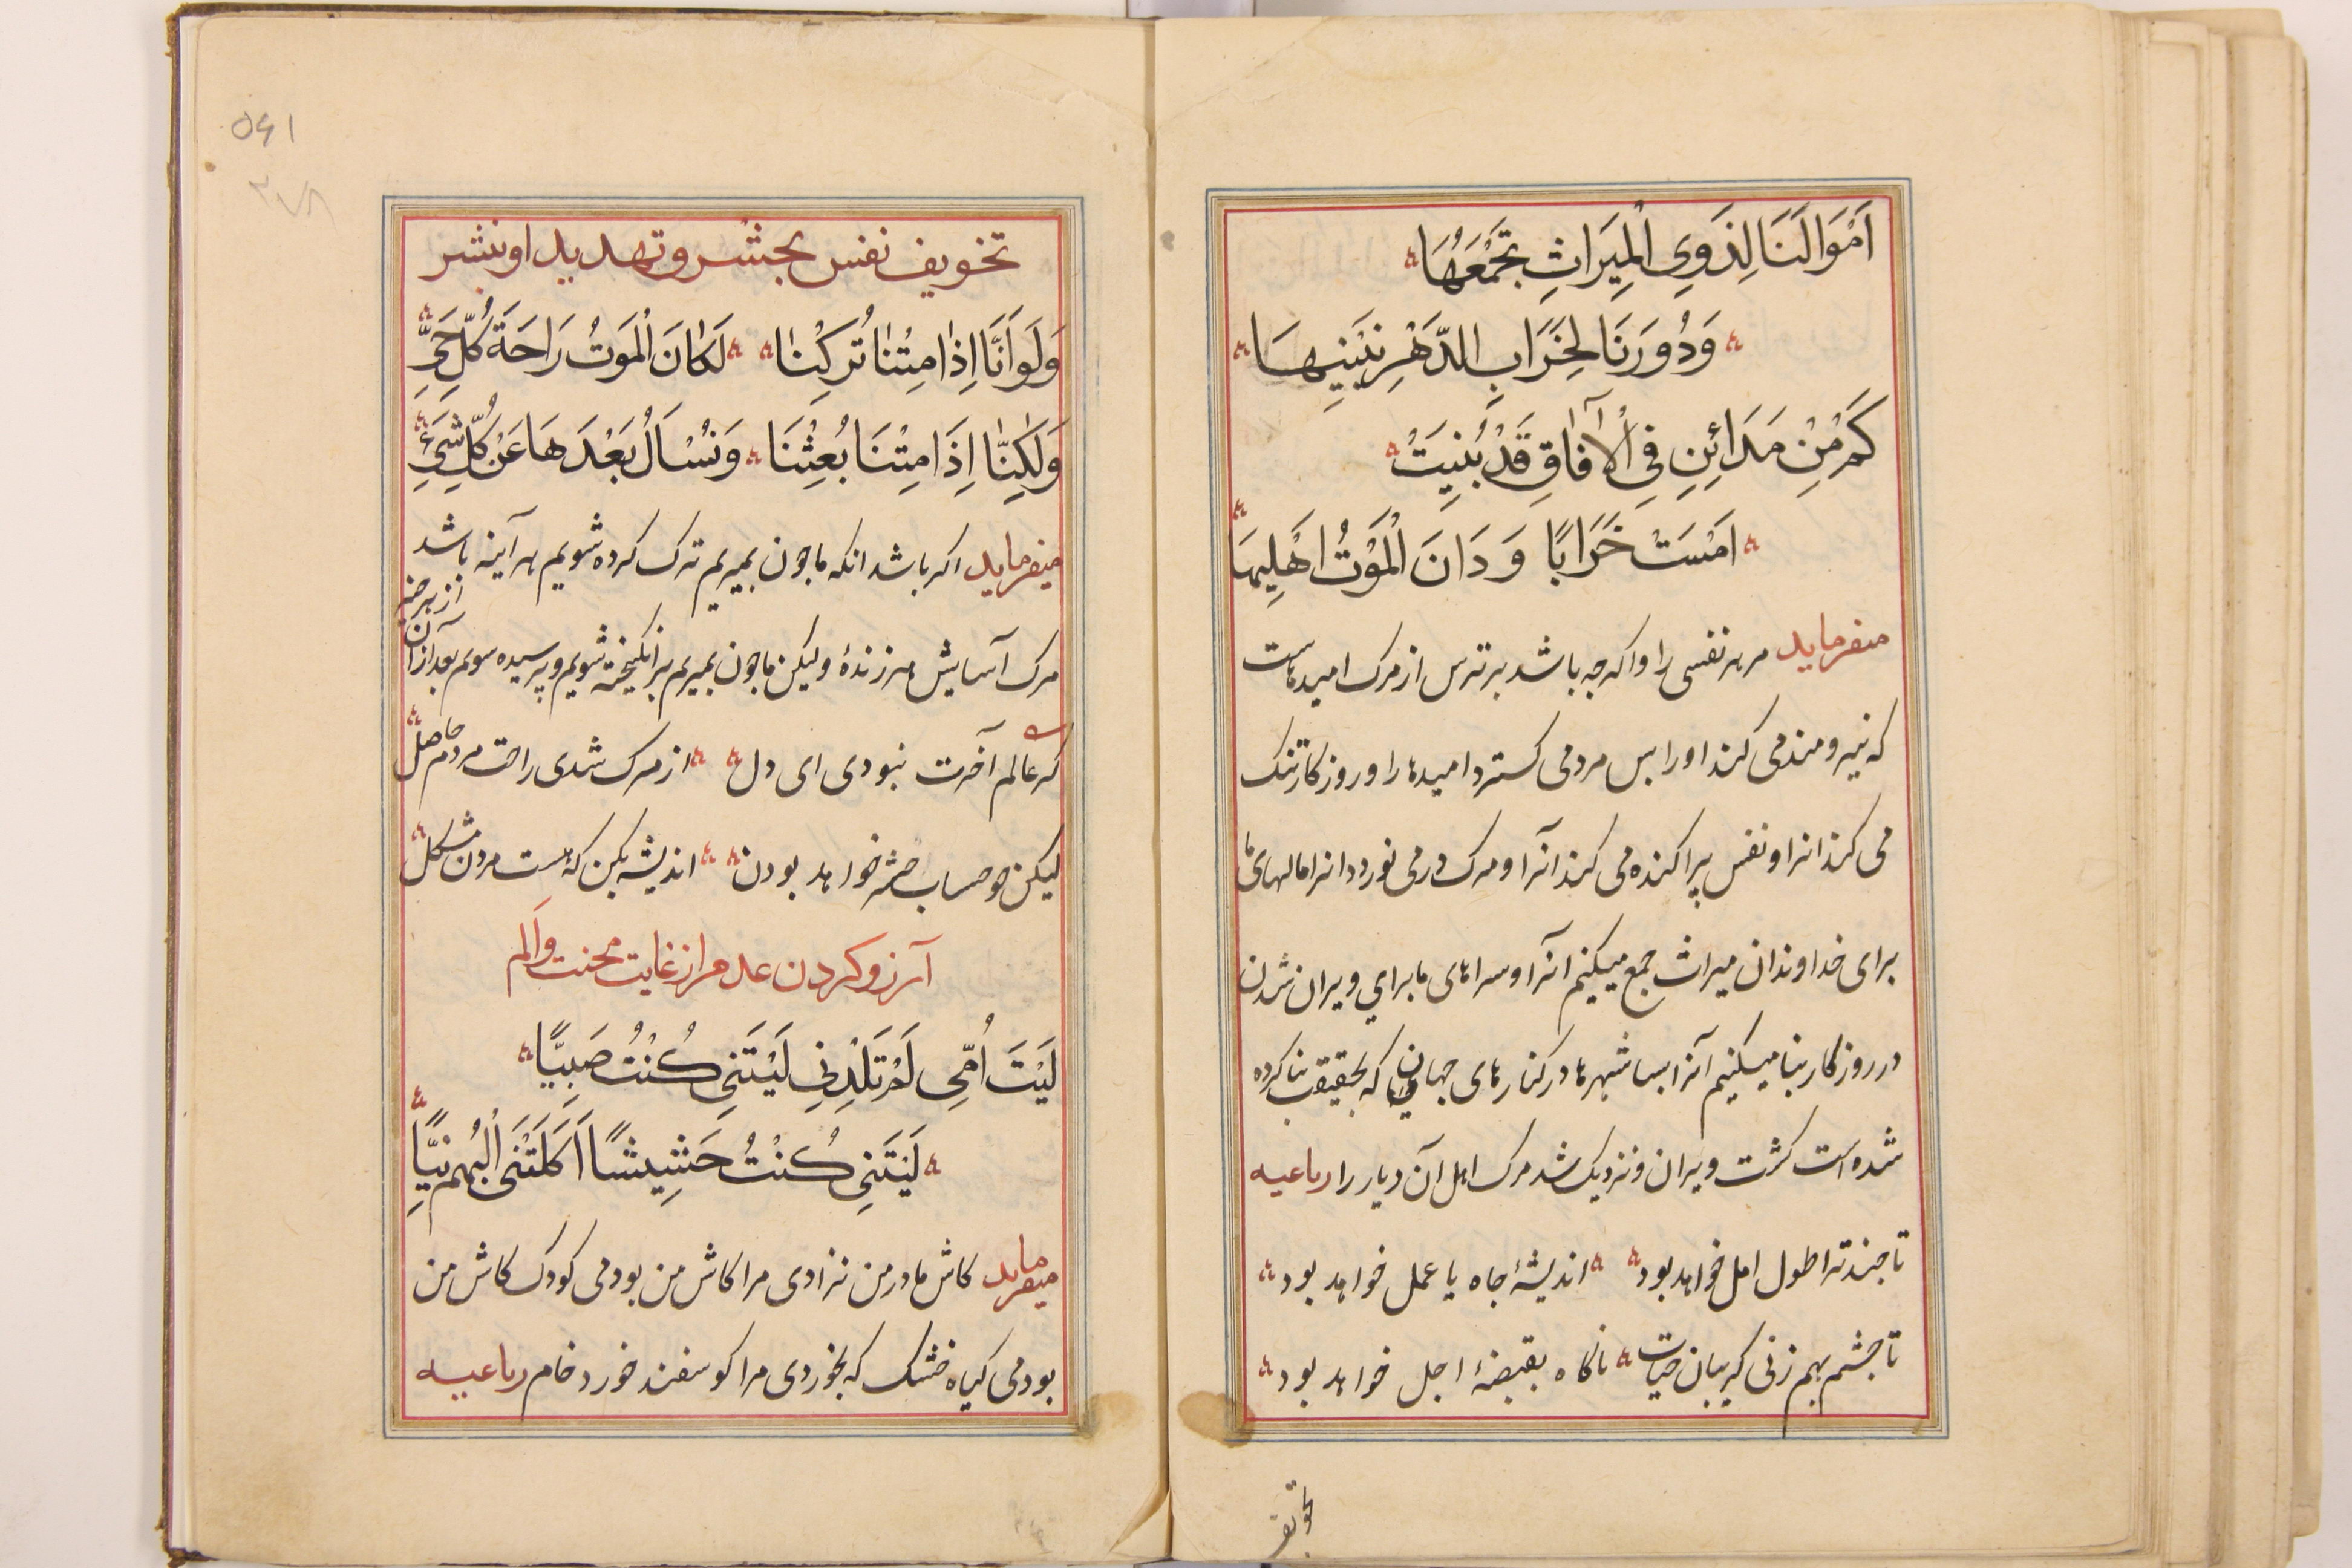 اَمْوَالَنَا لِذَوِي الْمِيرَاثِ نَجْمَعُهَا
وَدُورَنَا لِخَرَابِ الدَّهْرِ نَبْنِيهَا
كَمْ مِنْ مَدَائِنَ فِي الْآفَاقِ قَدْ بُنِيَتْ
اَمْسَتْ خَرَابًا وَدَانَ الْمَوْتُ اَهْلِيهَا
میفرماید مر هر نفسی را و اکرجه باشد بر ترس از مرک امیدهاست
که نیرومند می کند او را بس مرد می کسترد امیدها را و روزکار تنک
می کند انرا و نفس پراکنده می کند آنرا و مرک در می نوردد انرا مالهای ما
برای خداوندان میراث جمع میکنیم انرا و سراهای ما برای ویران شدن
در روزکار بنا میکنیم آنرا بسا شهرها در کنارهای جهان که بحقیقت بنا کرده
شده است کشت ویران و نزدیک شد مرک اهل آن دیار را رباعیه
تا جند ترا طول امل خواهد بود اندیشهٔ جاه یا عمل خواهد بود
تا جشم بهم زنی کریبان حیات ناکاه بقبضهٔ اجل خواهد بود
تخویف
۵۶۱
تخویف نفس بحشر و تهدید او بنشر
وَلَوْ اَنَّا اِذَا مِتْنَا تُرِكْنَا لَكَانَ الْمَوْتُ رَاحَةَ كُلِّ حَيٍّ
وَلَكِنَّا اِذَا مِتْنَا بُعِثْنَا وَنُسْأَلُ بَعْدَهَا عَنْ كُلِّ شَيْءٍ
میفرماید اکر باشد انکه ما جون بمیریم ترک کرده شویم هر آینه باشد
مرک آسایش هر زندهٔ ولیکن ما جون بمیریم برانکیخته شویم و پرسیده سویم بعد از آن از هر چیز
کر عالم آخرت نبودی ای دل از مرک شدی راحت مردم حاصل
لیکن جو حساب حشر خواهد بودن اندیشه بکن که هست مردن مشکل
آرزو کردن عدم از غایت محنت و الم
لَيْتَ اُمِّي لَمْ تَلِدْنِي لَيْتَنِي كُنْتُ صَبِيًّا
لَيْتَنِي كُنْتُ حَشِيشًا اَكَلَتْنِي الْبُهْمُ نِيًّا
میفرماید کاش مادر من نزادی مرا کاش من بودمی کودک کاش من
بودمی کیاه خشک که بخوردی مرا کوسفند خورد خام رباعیه